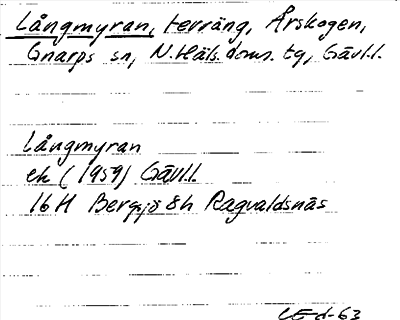 Långmyran, terräng, Årskogen,
Gnarps sn, N. Häls. doms. tg, Gävl.l.
Långmyran
ek (1959) Gävl.l.
16H Bergsjö 8h Ragvaldsnäs
CE d-63